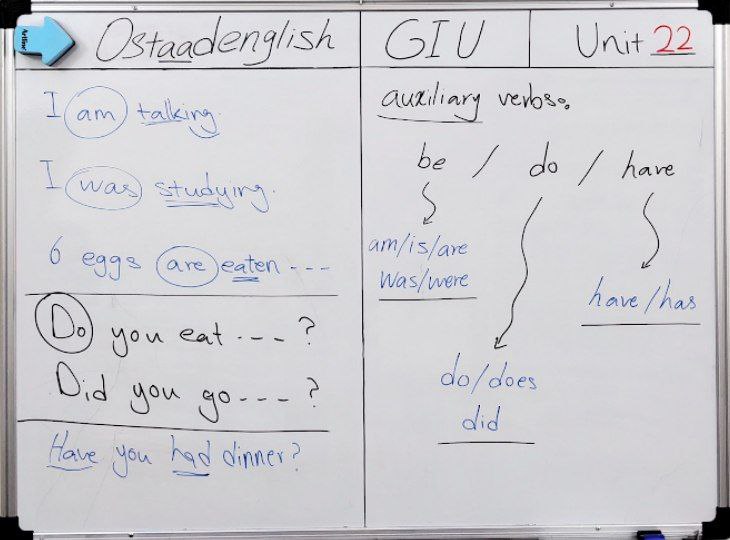 Artline
Ostaadenglish
GIU
Unit 22
I am talking.
I was studying.
6 eggs are eaten ---
Do you eat --- ?
Did you go --- ?
Have you had dinner?
auxiliary verbs:
be / do / have
am/is/are
was/were
have/has
do/does
did